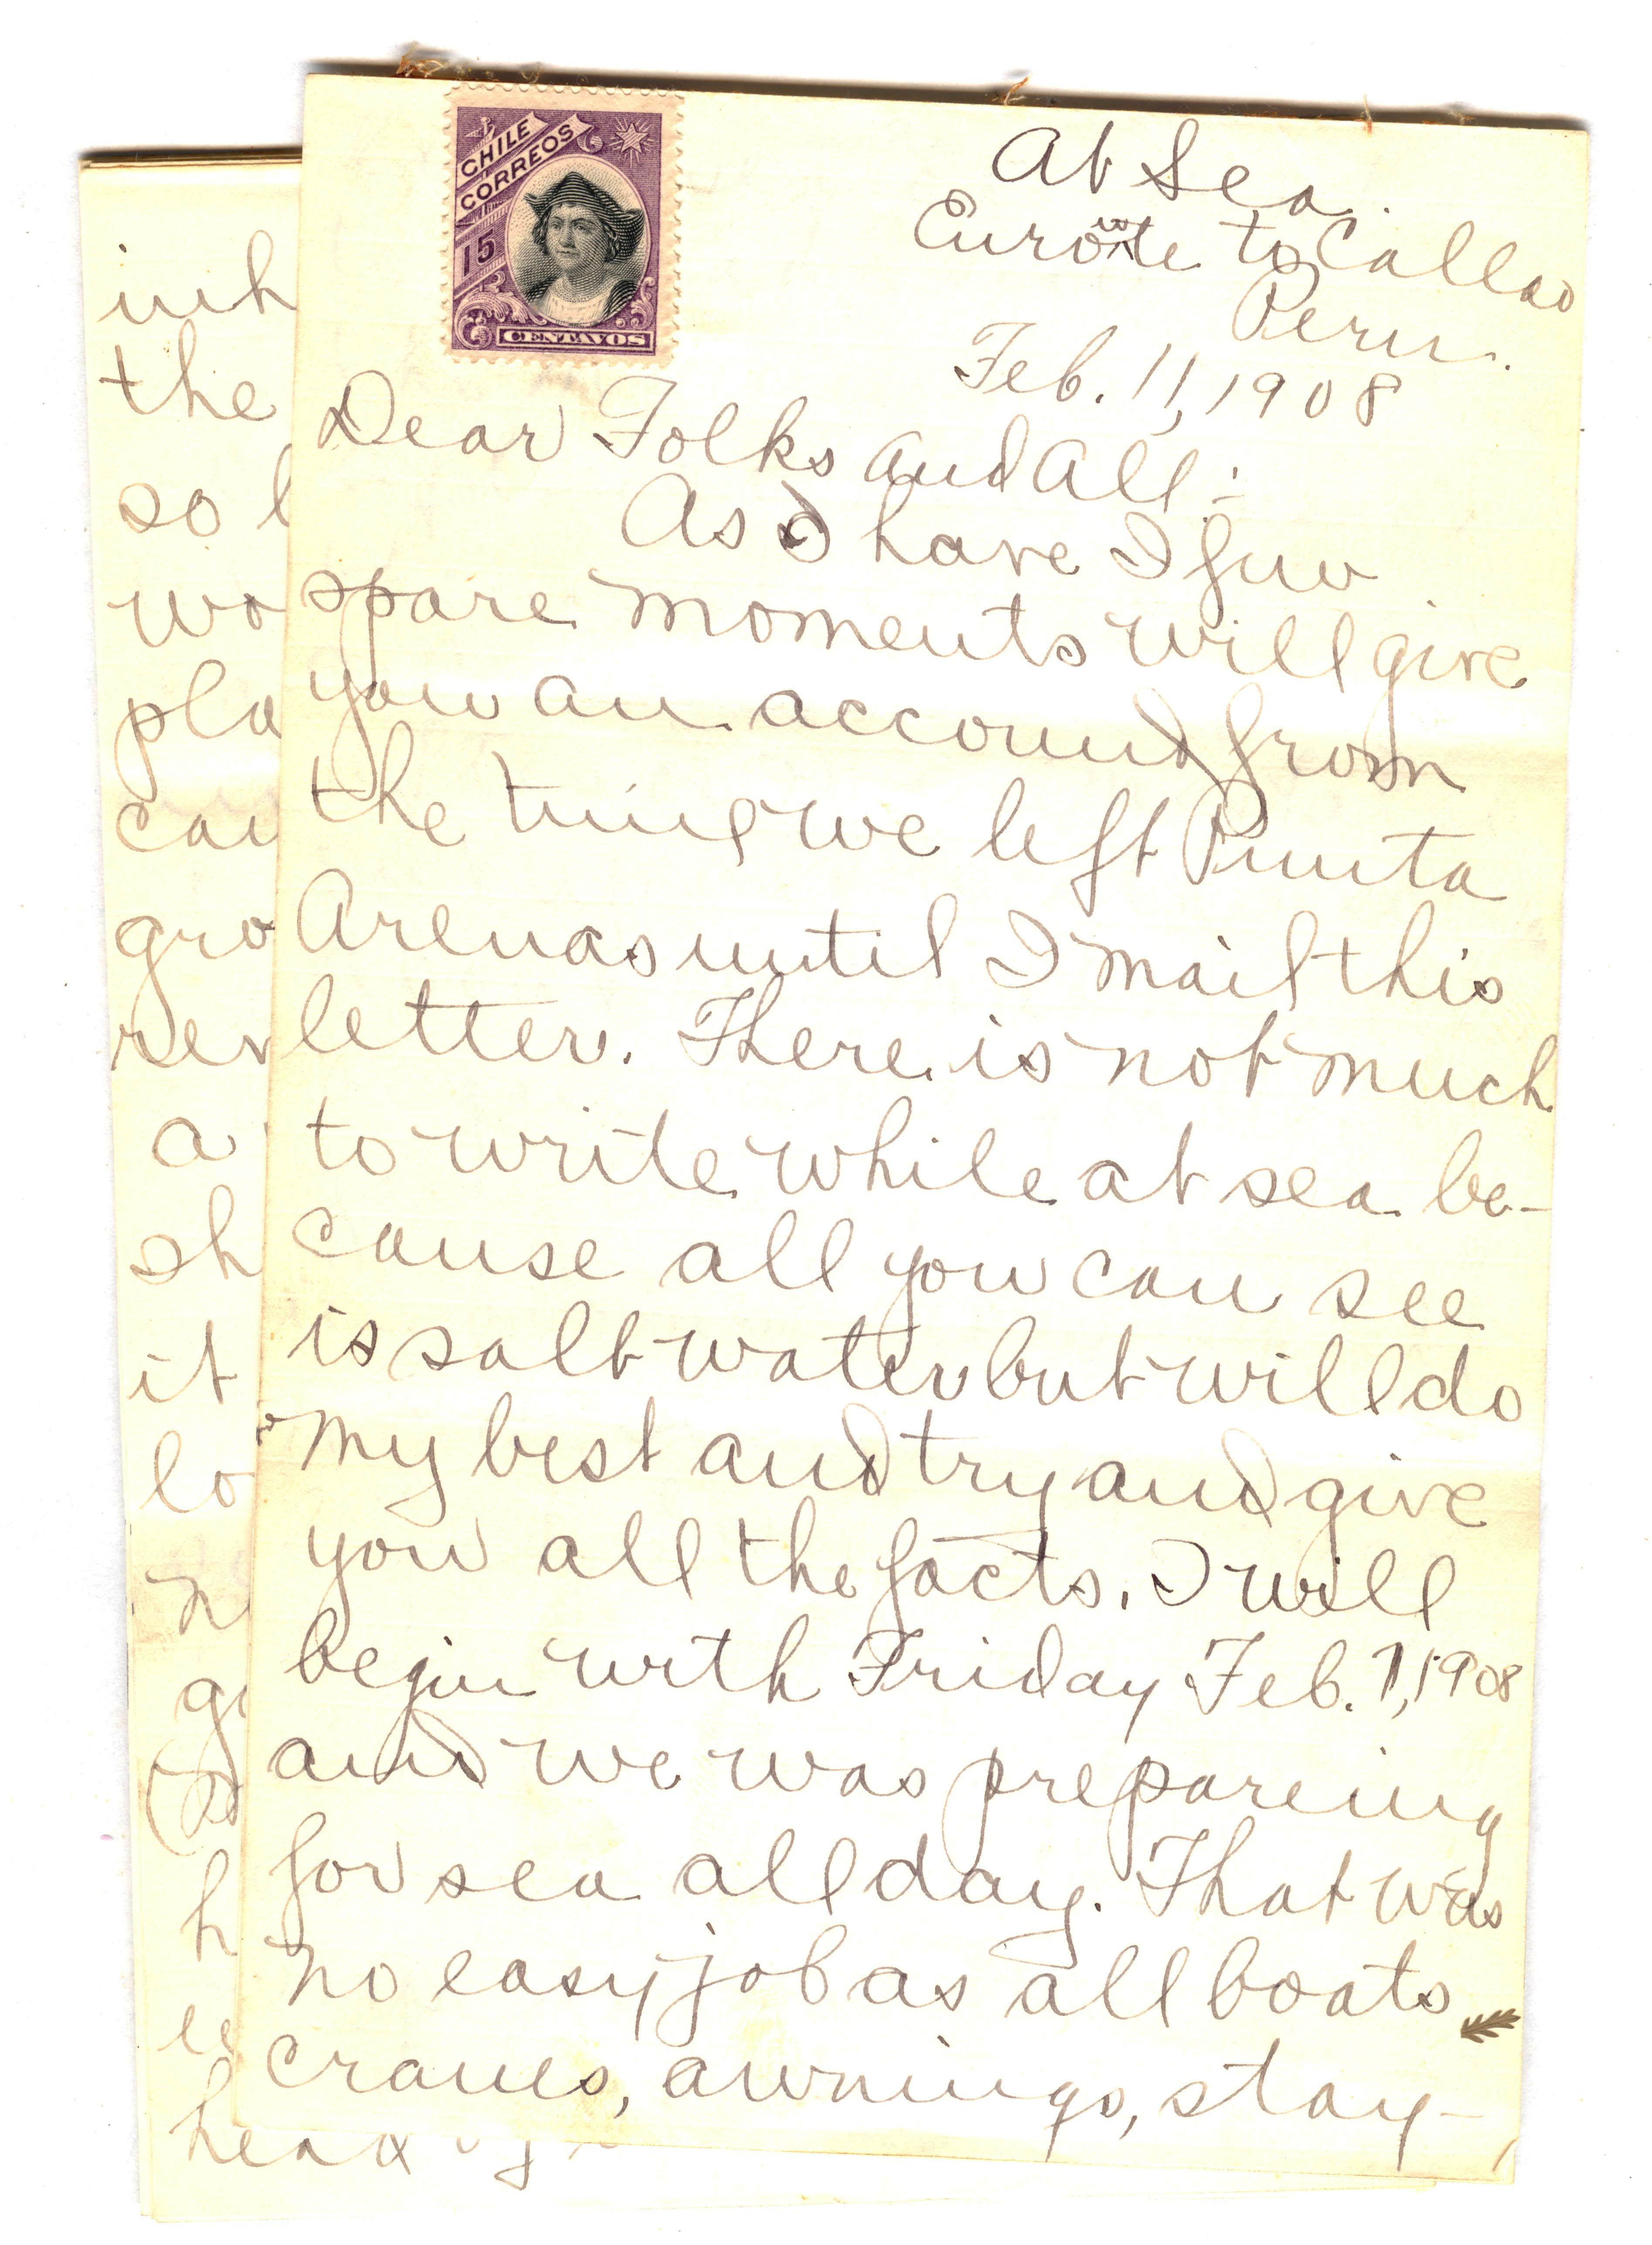 CHILE
CORREOS
15
CENTAVOS
At Sea.
Euroute to Callao
Peru.
Feb. 11, 1908
Dear Folks and All:-
As I have I few
spare moments will give
you an account from
the time we left Punta
Arenas until I mail this
letter. There is not much
to write while at sea be-
cause all you can see
is salt water but will do
my best and try and give
you all the facts. I will
begin with Friday Feb. 7, 1908
and we was prepareing
for sea all day. That was
no easy job as all boats
cranes, awnings, stay-
inh
the
so
wo
pla
can
gro
rev
a
sh
it
lo
h
head